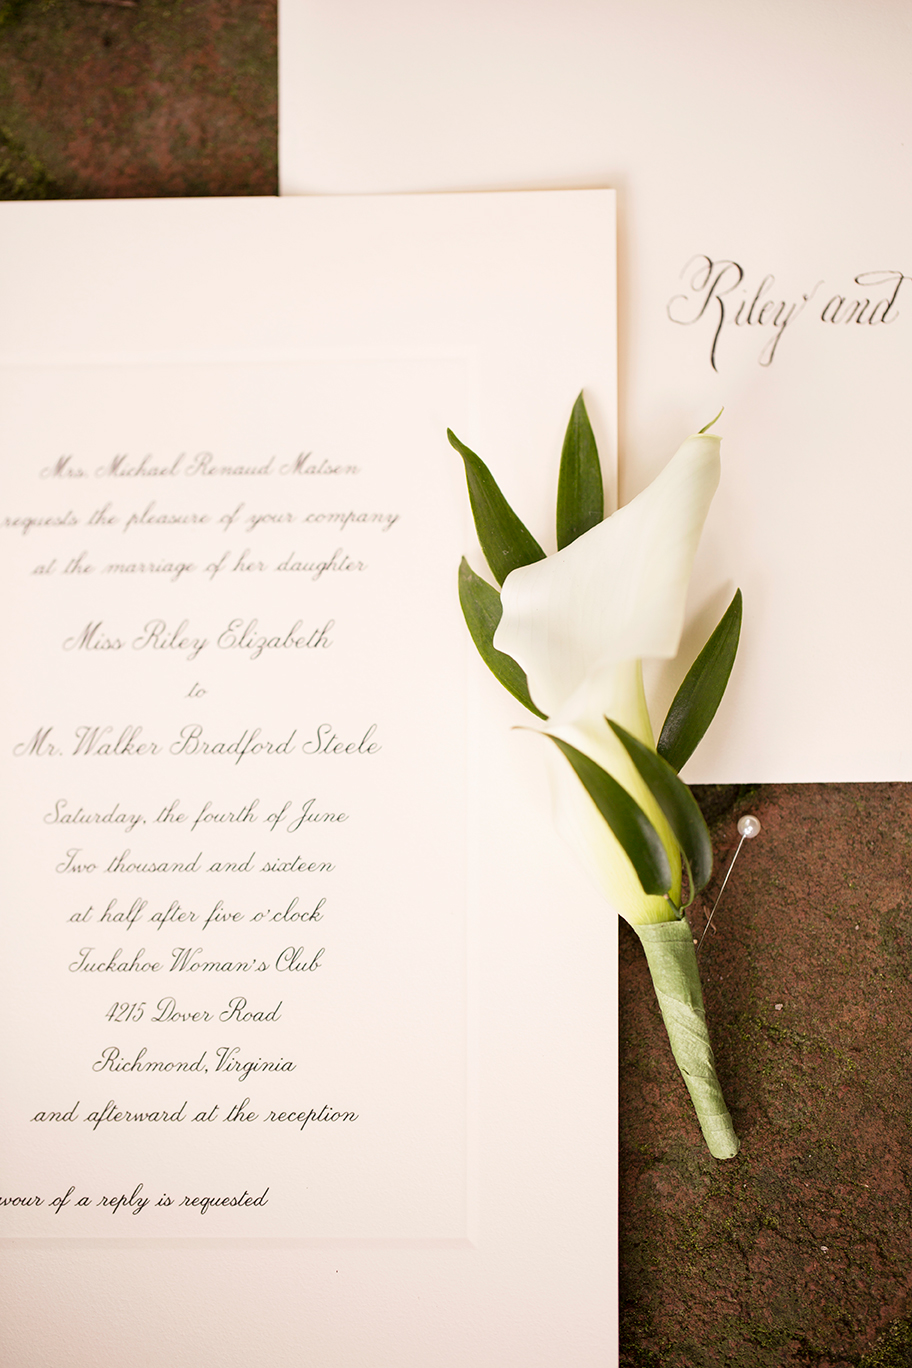 Riley and
Mrs. Michael Renaud Matsen
requests the pleasure of your company
at the marriage of her daughter
Miss Riley Elizabeth
to
Mr. Walker Bradford Steele
Saturday, the fourth of June
Two thousand and sixteen
at half after five o'clock
Tuckahoe Woman's Club
4215 Dover Road
Richmond, Virginia
and afterward at the reception
of a reply is requested